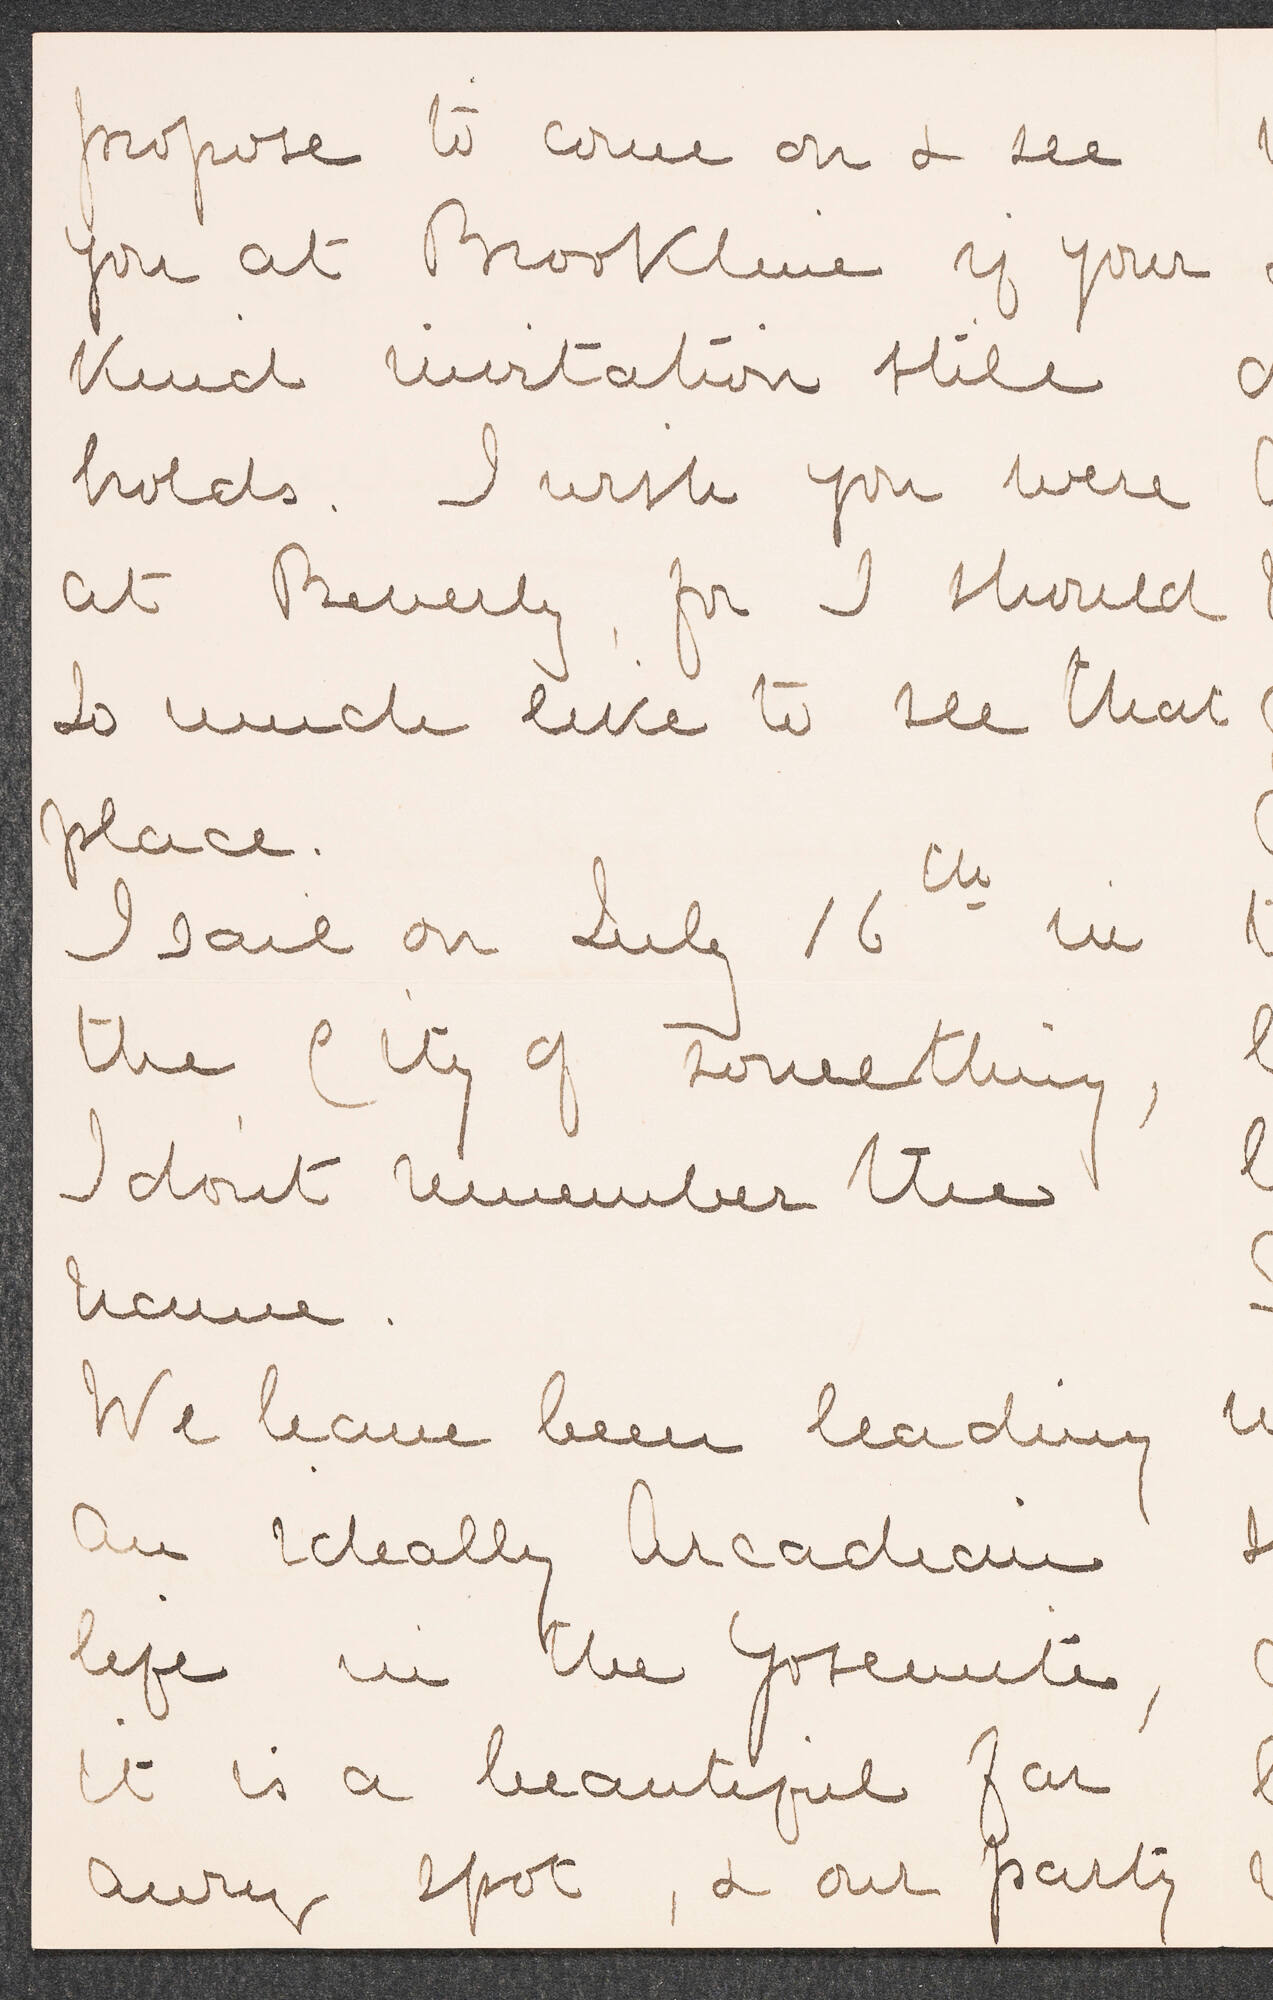 propose to come on & see
you at Brookline if your
kind invitation still
holds. I wish you were
at Beverly, for I should
so much like to see that
place.
I sail on July 16th in
the City of something,
I don't remember the
name.
We have been leading
an ideally Arcadian
life in the Yosemite,
it is a beautiful far
away spot, & our party